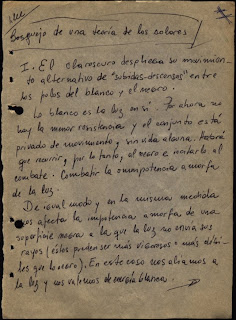 Bosquejo de una teoría de los colores
I: El claroscuro despliega su movimien-
to alternativo de "subidas-descensos" entre
los polos del blanco y el negro.
Lo blanco es la luz en sí. Por ahora no
hay la menor resistencia y el conjunto está
privado de movimiento y sin vida alguna. Habrá
que recurrir, por lo tanto, al negro e incitarlo al
combate. Combatir la omnipotencia amorfa
de la luz.
De igual modo y en la misma medida
nos afecta la impotencia amorfa de una
superficie negra a la que la luz no envía sus
rayos (éstos pueden ser más vigorosos o más débi-
les que lo negro). En este caso nos aliamos a
la luz y nos valemos de energía blanca.